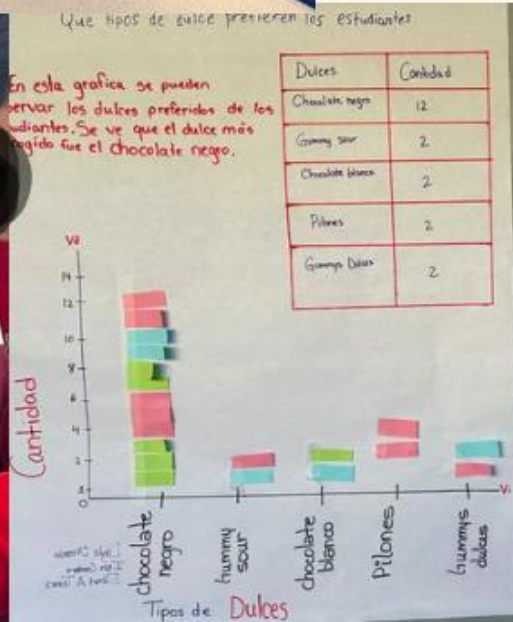 Que tipos de dulce prefieren los estudiantes
En esta grafica se pueden
ervar los dulces preferidos de los
udiantes. Se ve que el dulce más
ogido fue el chocolate negro.
Dulces Cantidad
Chocolate negro 12
Gummy sour 2
Chocolate blanco 2
Pilones 2
Gummys Dulces 2
Vd
14
12
10
8
6
4
2
0
Cantidad
Vi
chocolate negro
Gummy sour
chocolate blanco
Pilones
Gummys dulces
Tipos de Dulces